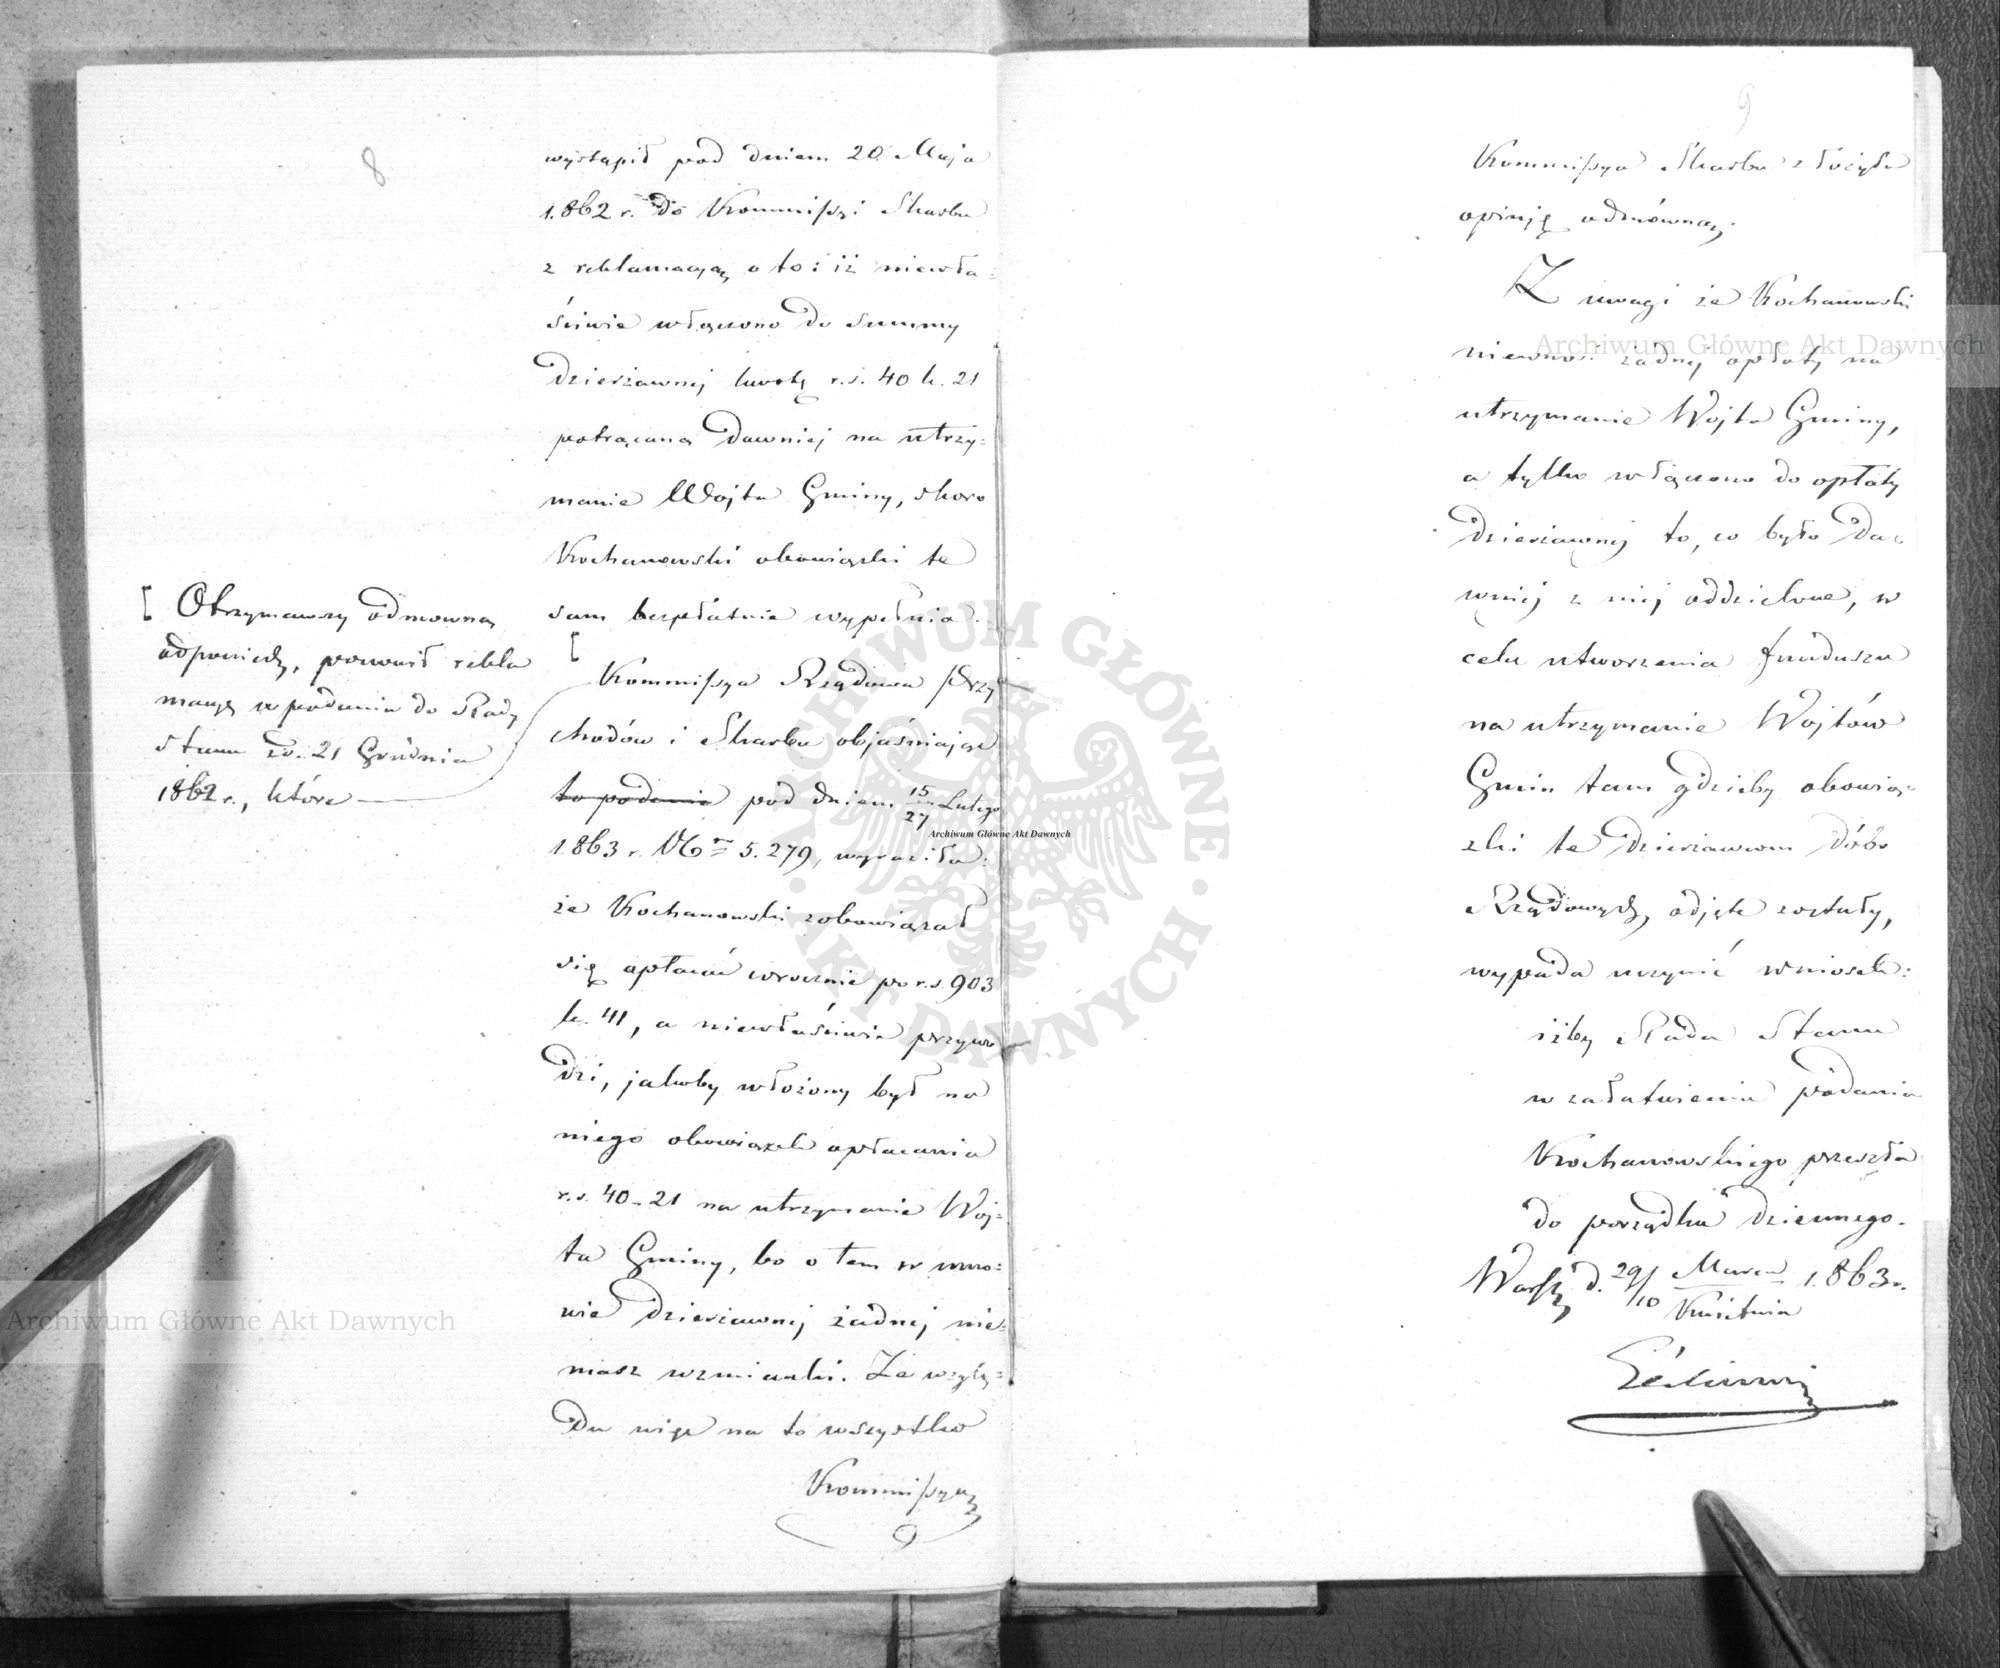 8
wystąpił pod dniem 20 Maja
1862 r. do Kommissyi Skarbu
z reklamacyą o to: iż niewła=
ściwie włączono do summy
dzierżawnej kwotę r.s. 40 k. 21
potrącaną dawniej na utrzy=
manie Wójta Gminy, skoro
Kochanowski obowiązki te
sam bezpłatnie wypełnia.
[ Otrzymawszy odmowną
odpowiedź, ponowił rekla
macyę w podaniu do Rady
Stanu z d. 21 Grudnia
1862 r., które
[
Kommissya Rządowa Przy
chodów i Skarbu objaśniając
to podanie pod dniem 15/27 Lutego
1863 r. Nr 5.279, wyraziła:
że Kochanowski zobowiązał
się opłacać corocznie po r.s. 903
k. 41, a niewłaściwie przywo
dzi, jakoby włożony był na
niego obowiązek opłacania
r.s. 40-21 na utrzymanie Wój=
ta Gminy, bo o tem w umo=
wie dzierżawnej żadnej nie=
masz wzmianki. Ze wzglę=
du więc na to wszystko
Kommissya
9
Kommissya Skarbu złożyła
opiniję odmówną.
Z uwagi że Kochanowski
niewnosi żadnej opłaty na
utrzymanie Wójta Gminy,
a tylko włączono do opłaty
dzierżawnej to, co było da=
wniej z niej oddzielone, w
celu utworzenia funduszu
na utrzymanie Wójtów
Gmin tam gdzieby obowią=
zki te dzierżawcom Dóbr
Rządowych odjęte zostały,
wypada uczynić wniosek:
iżby Rada Stanu
w załatwieniu podania
Kochanowskiego przeszła
do porządku dziennego.
Warsz. d. 29/10 Marca/Kwietnia 1863 r.
Archiwum Główne Akt Dawnych
Archiwum Główne Akt Dawnych
Archiwum Główne Akt Dawnych
ARCHIWUM GŁÓWNE · AKT DAWNYCH ·